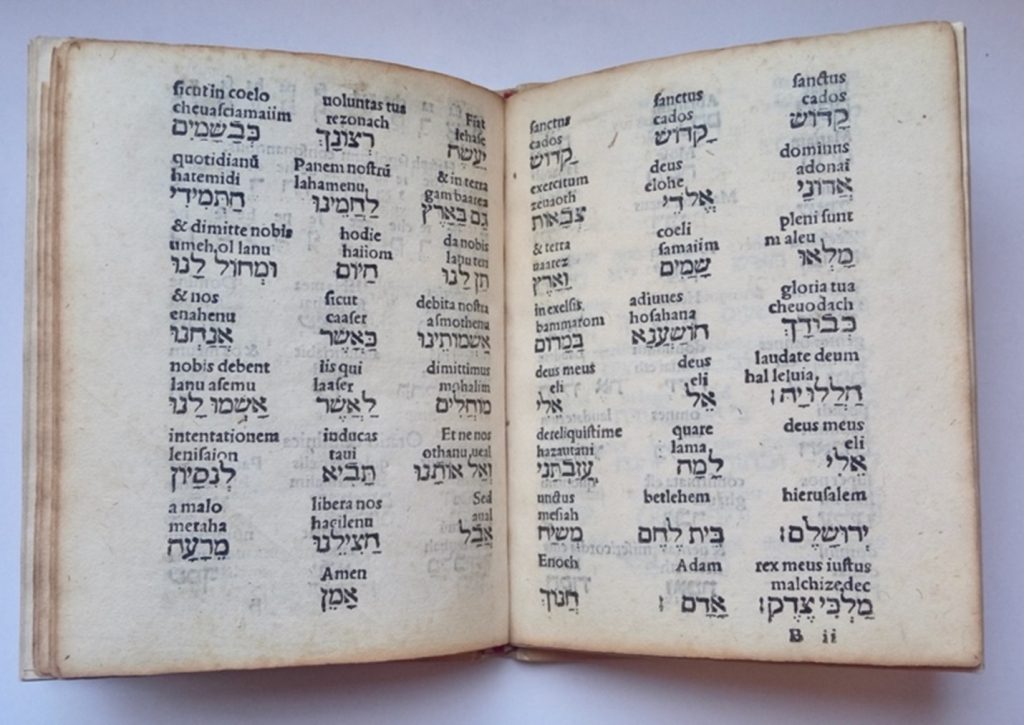 Fiat uoluntas tua ſicut in coelo
iehaſe rezonach cheuaſciamaiim
יֵעָשֶׂה רְצוֹנְךָ כְּבְשָׁמַיִם
& in terra Panem noſtrū quotidianū
gam baarez lahamenu hatemidi
גַם בָּאָרֶץ לַחְמֵינוּ הַתְּמִידִי
da nobis hodie & dimitte nobis
lanu ten haiiom umeh,ol lanu
תֵן לָנוּ הַיּוֹם וּמְחוֹל לָנוּ
debita noſtra ſicut & nos
aſmothenu caaſer enahenu
אַשְׁמוֹתֵינוּ כַּאֲשֶׁר אֲנַחְנוּ
dimittimus iis qui nobis debent
mohalim laaſer lanu aſemu
מוֹחֲלִים לַאֲשֶׁר אָשְׁמוּ לָנוּ
Et ne nos inducas in tentationem
othanu,ueal taui leniſaion
וְאַל אוֹתָנוּ תָּבִיא לְנִסָיוֹן
Sed libera nos a malo
aual haẓilenu meraha
אֲבָל הַצִּילֵנוּ מֵרָעָה
Amen
אָמֵן
ſanctus ſanctus ſanctus
cados cados cados
קָדוֹשׁ קָדוֹשׁ קָדוֹשׁ
dominus deus exercitum
adonai elohe zeuaoth
אֲדוֹנָי אֱלֹהֵי צְבָאוֹת
pleni ſunt coeli & terra
maleu ſamaiim uaarez
מָלְאוּ שָׁמַיִם וָאָרֶץ
gloria tua adiuues in exelſis
cheuodach hoſahana bammarom
כְּבוֹדָךְ הוֹשַׁעֲנָא בַּמָּרוֹם
laudate deum deus deus meus
hal leluia eli eli
הַלְלוּיָה: אֵל אֵלִי
deus meus quare dereliquiſtime
eli lama hazautani
אֵלִי לָמָּה עֲזַבְתָּנִי
hieruſalem betlehem unctus
meſiah
יְרוּשָׁלֵם: בֵּית לֶחֶם מָשִׁיחַ
rex meus iuſtus Adam Enoch
malchizedec
מַלְכִּי צֶדֶק: אָדָם: חֲנוֹךְ
B ii